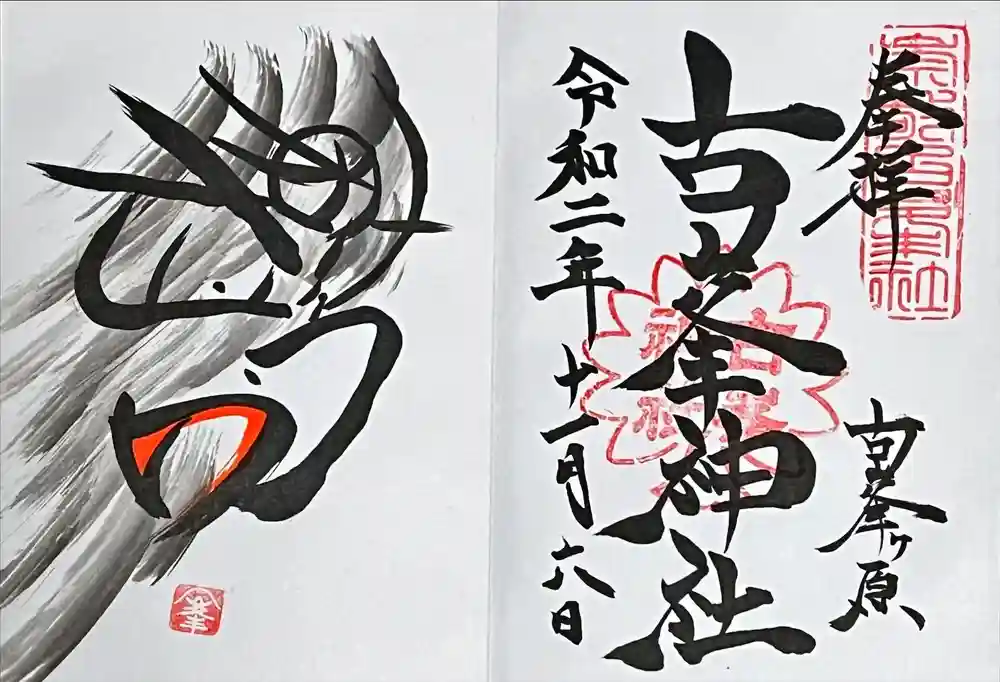 奉拝
古峯ヶ原
古峯神社
令和二年十一月六日